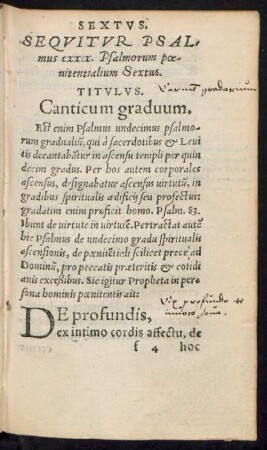 SEXTVS.
SEQVITVR PSAL
mus cxxix. Psalmorum pœ-
nitentialium Sextus.
TITVLVS.
graduum
Canticum graduum.
Est enim Psalmus undecimus psalmo-
rum gradualiũ, qui à sacerdotibus & Leui
tis decantabãtur in ascensu templi per quin
decim gradus. Per hos autem corporales
ascensus, designabatur ascensus uirtutũ, in
gradibus spiritualis ædificij seu profectus:
gradatim enim proficit homo. Psalm. 83.
Ibunt de uirtute in uirtutẽ. Pertractat autẽ
hic Psalmus de undecimo gradu spiritualis
ascensionis, de pœnitẽtiali scilicet prece ad
Dominũ, pro peccatis præteritis & cotidi
anis excessibus. Sic igitur Propheta in per-
sona hominis pœnitentis ait:
profundo
DE profundis,
ex intimo cordis affectu, de
f 4 hoc